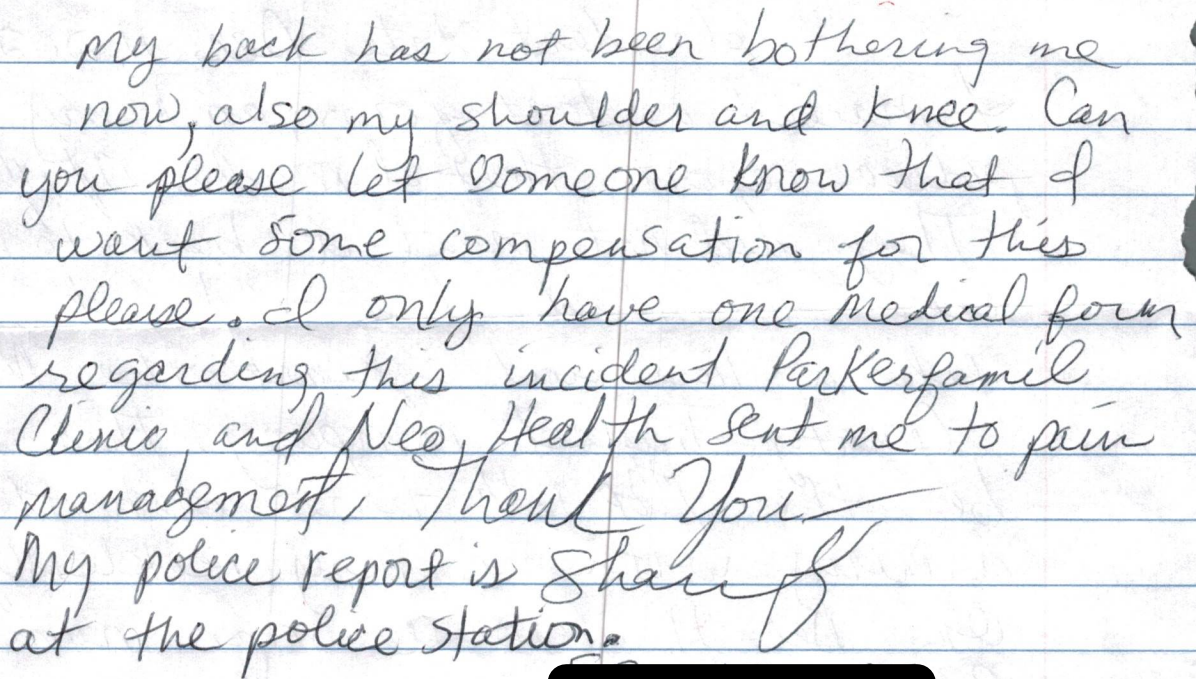 My back has not been bothering me
now, also my shoulder and knee. Can
you please let someone know that I
want some compensation for this
please. I only have one medical form
regarding this incident Parkerfamil
Clinic, and Neo, Health sent me to pain
management, Thank You
My police report is
at the police station.